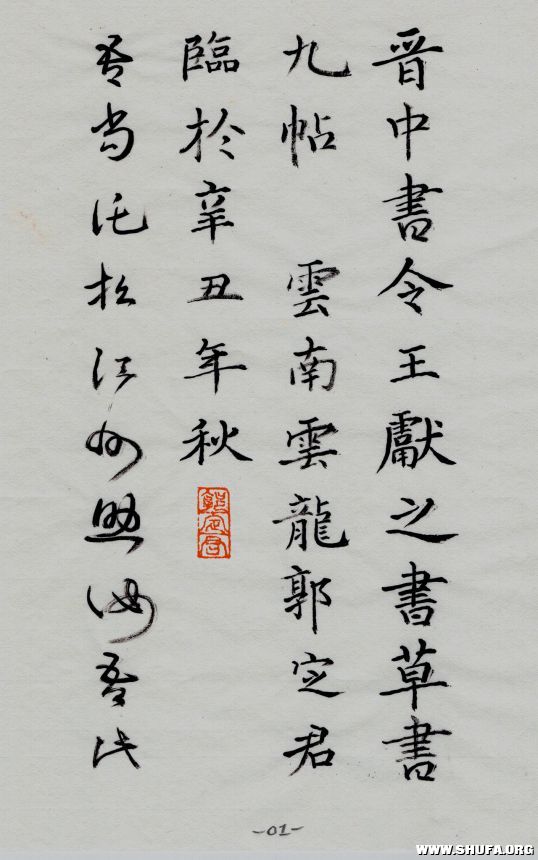 晋中書令王獻之書草書
九帖 雲南雲龍郭定君
臨於辛丑年秋
郭定君
吾當託桓江州助汝吾此
-01-
WWW.SHUFA.ORG